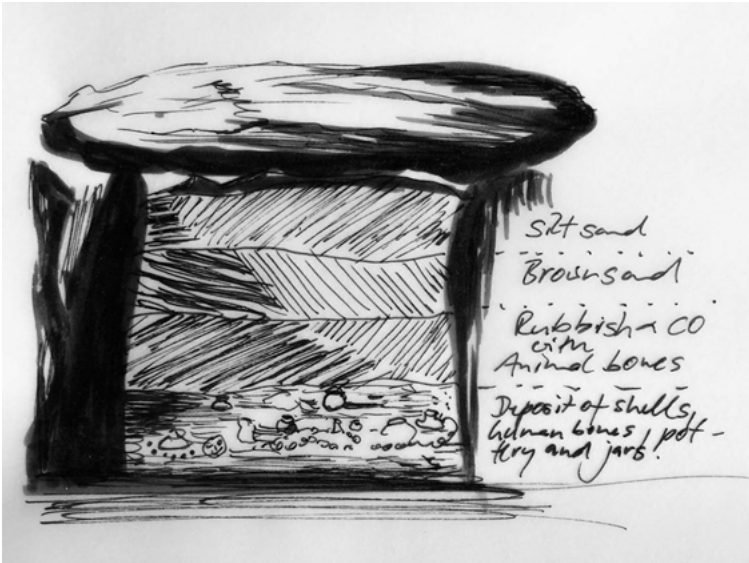 Silt sand
Brown sand
Rubbish & CO
with
Animal bones
Diposit of shells,
human bones, pot-
tery and jars.